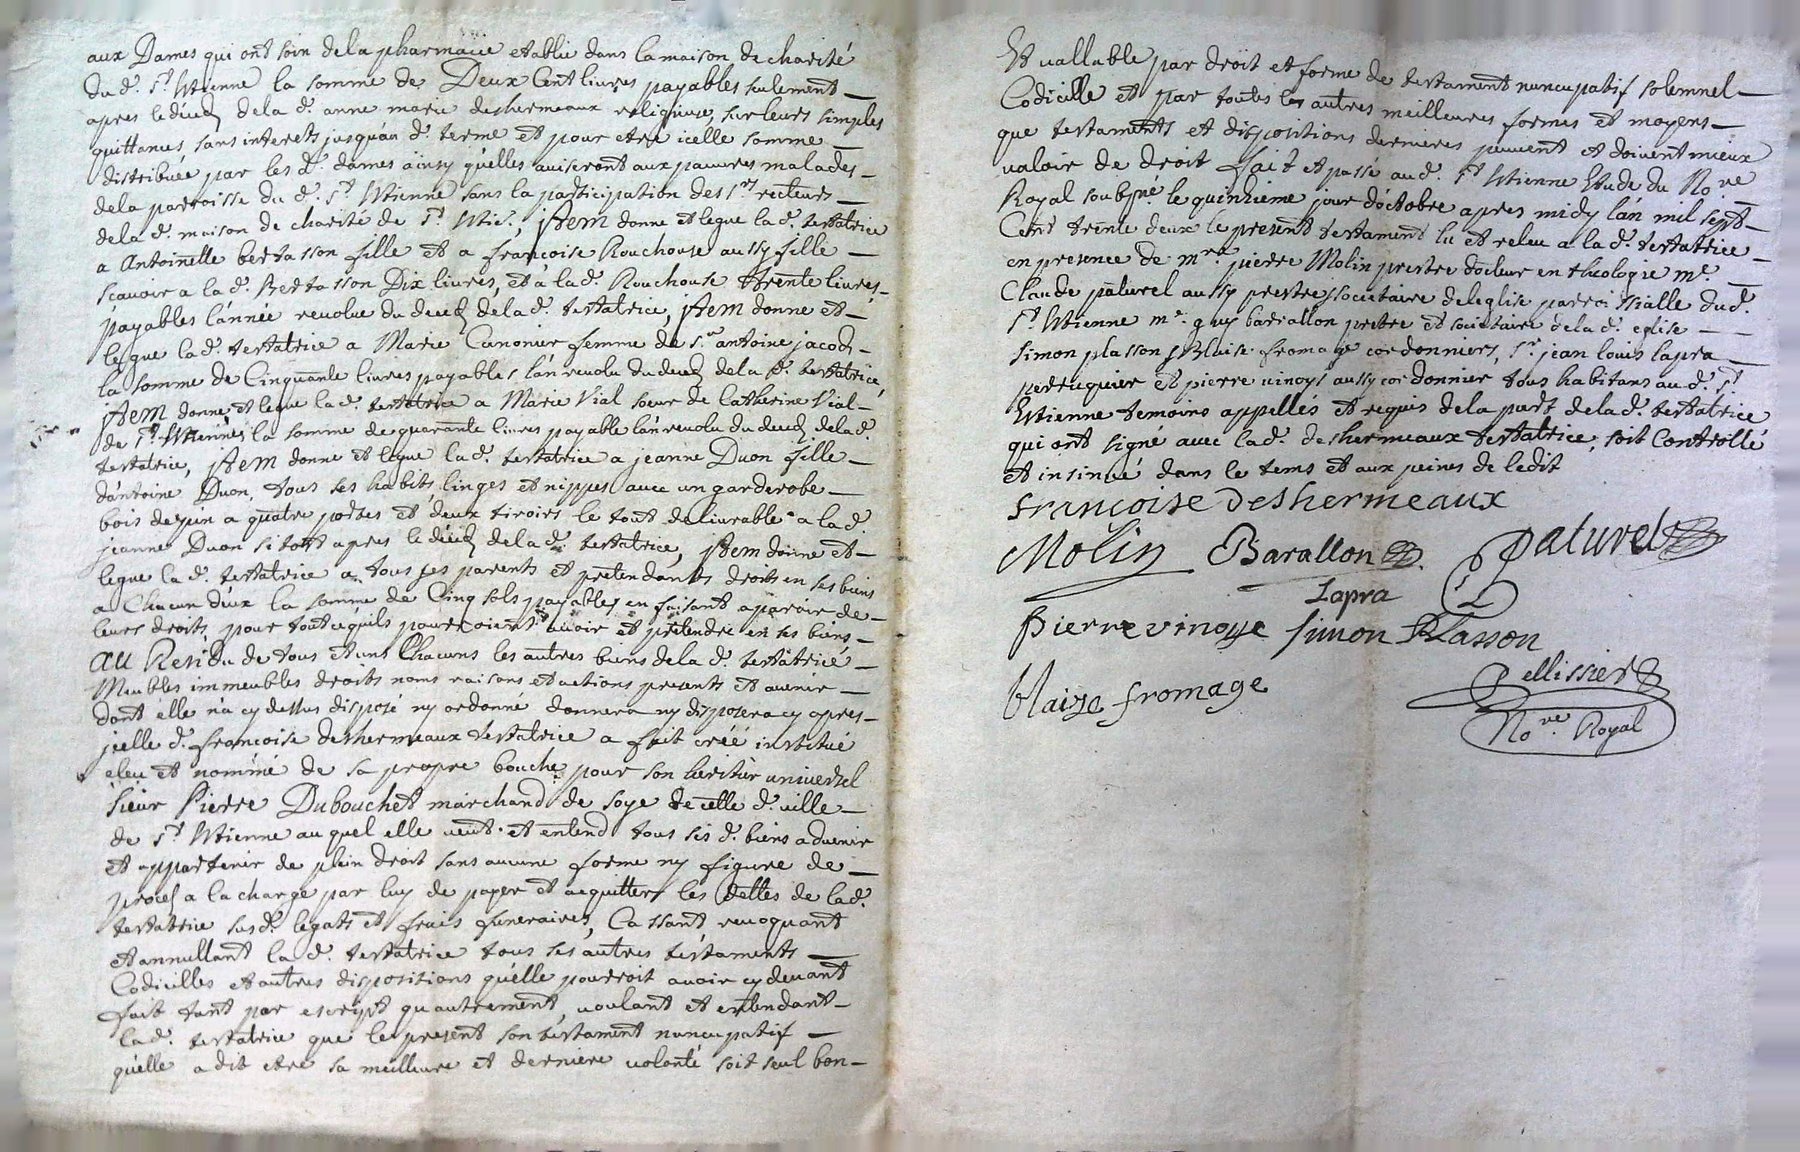 aux Dames qui ont soin dela pharmacie etablie dans la maison de charité
du d. St Etienne la somme de Deux Cent livres payables seulement
apres le décéd dela d. anne marie deshermeaux religieuse, sur leurs simples
quittances, sans interets jusquau d. terme et pour etre icelle somme
distribuée par les d. dames ainsy quelles auiseront aux pauures malades
dela parroisse du d. St Etienne sans la participation des Srs recteurs
dela d. maison de charité de St Etie., Item donne et legue la d. testatrice
a Antoinette bertasson fille et a francoise Rouchouse aussy fille
scauoir a la d. Bertasson Dix livres, et à la d. Rouchouse trente livres
payables l'année revolue du deced dela d. testatrice, Item donne et
legue la d. testatrice a Marie Canonier femme de Sr antoine jacod
la somme de Cinquante livres payables l'an revolu du deced dela d. testatrice,
Item donne et legue la d. testatrice a Marie Vial soeur de Catherine Vial
de St Etienne la somme de quarante livres payable l'an revolu du deced dela d.
testatrice, Item donne et legue la d. testatrice a jeanne Duon fille
d'antoine Duon, tous ses habits, linges et nippes auec un garderobe
bois de pin a quatre portes et deux tiroirs le tout deliurable a la d.
jeanne Duon sitost apres le décéd dela d. testatrice, Item donne et
legue la d. testatrice a tous ses parents et pretendants droits en ses biens
a Chacun d'eux la somme de Cinq sols payables en faisant aparoir de
leurs droits, pour tout ce quils pourroient auoir et pretendre en ses biens
AU Residu de tous et uns Chacuns les autres biens dela d. testatrice
Meubles immeubles droits noms raisons et actions presents et auenir
dont elle n'a cy dessus disposé ny ordonné donnera ny disposera cy apres
jcelle d. francoise deshermeaux testatrice a fait créé institué
eleu et nommé de sa propre bouche pour son heritier universel
sieur Pierre Dubouchet marchand de soye de cette d. ville
de St Etienne au quel elle veut et entend tous ses d. biens aduenir
et appartenir de plein droit sans aucune forme ny figure de
procés a la charge par luy de payer et acquitter les dettes de la d.
testatrice susd. legats et frais funeraires, Cassant, reuoquant
et annullant la d. testatrice tous ses autres testaments
Codicilles et autres dispositions quelle pourroit auoir cy deuant
fait tant par escript qu'autrement, voulant et entendant
la d. testatrice que le present son testament nuncupatif
quelle a dit etre sa meilleure et derniere volonté soit seul bon
Et vallable par droit et forme de testament nuncupatif solemnel
Codicille et par toutes les autres meilleures formes et moyens
que testaments et dispositions dernieres peuuent et doiuent mieux
valoir de droit fait et passé au d. St Etienne Etude du No.re
Royal soubsné le quinzieme jour d'octobre apres midy l'an mil sept
Cent trente deux le present testament lu et releu a la d. testatrice
en presence de mre pierre Molin prestre docteur en theologie me
Claude paturel aussy prestre societaire de leglise parroissialle du d.
St Etienne me guy barrallon prestre et societaire dela d. eglise
simon plasson & Blaise fromage cordonniers, Sr jean louis lapra
perruquier et pierre vinoys aussy cordonnier tous habitans au d. St
Etienne temoins appellés et requis dela part dela d. testatrice
qui ont signé avec la d. deshermeaux testatrice, soit Controllé
et insinué dans le tems et aux peines de ledit
francoise deshermeaux
Molin Barallon Paturel
Lapra
Pierre vinoye simon Plasson
blaize fromage
Pellissier
No.re Royal